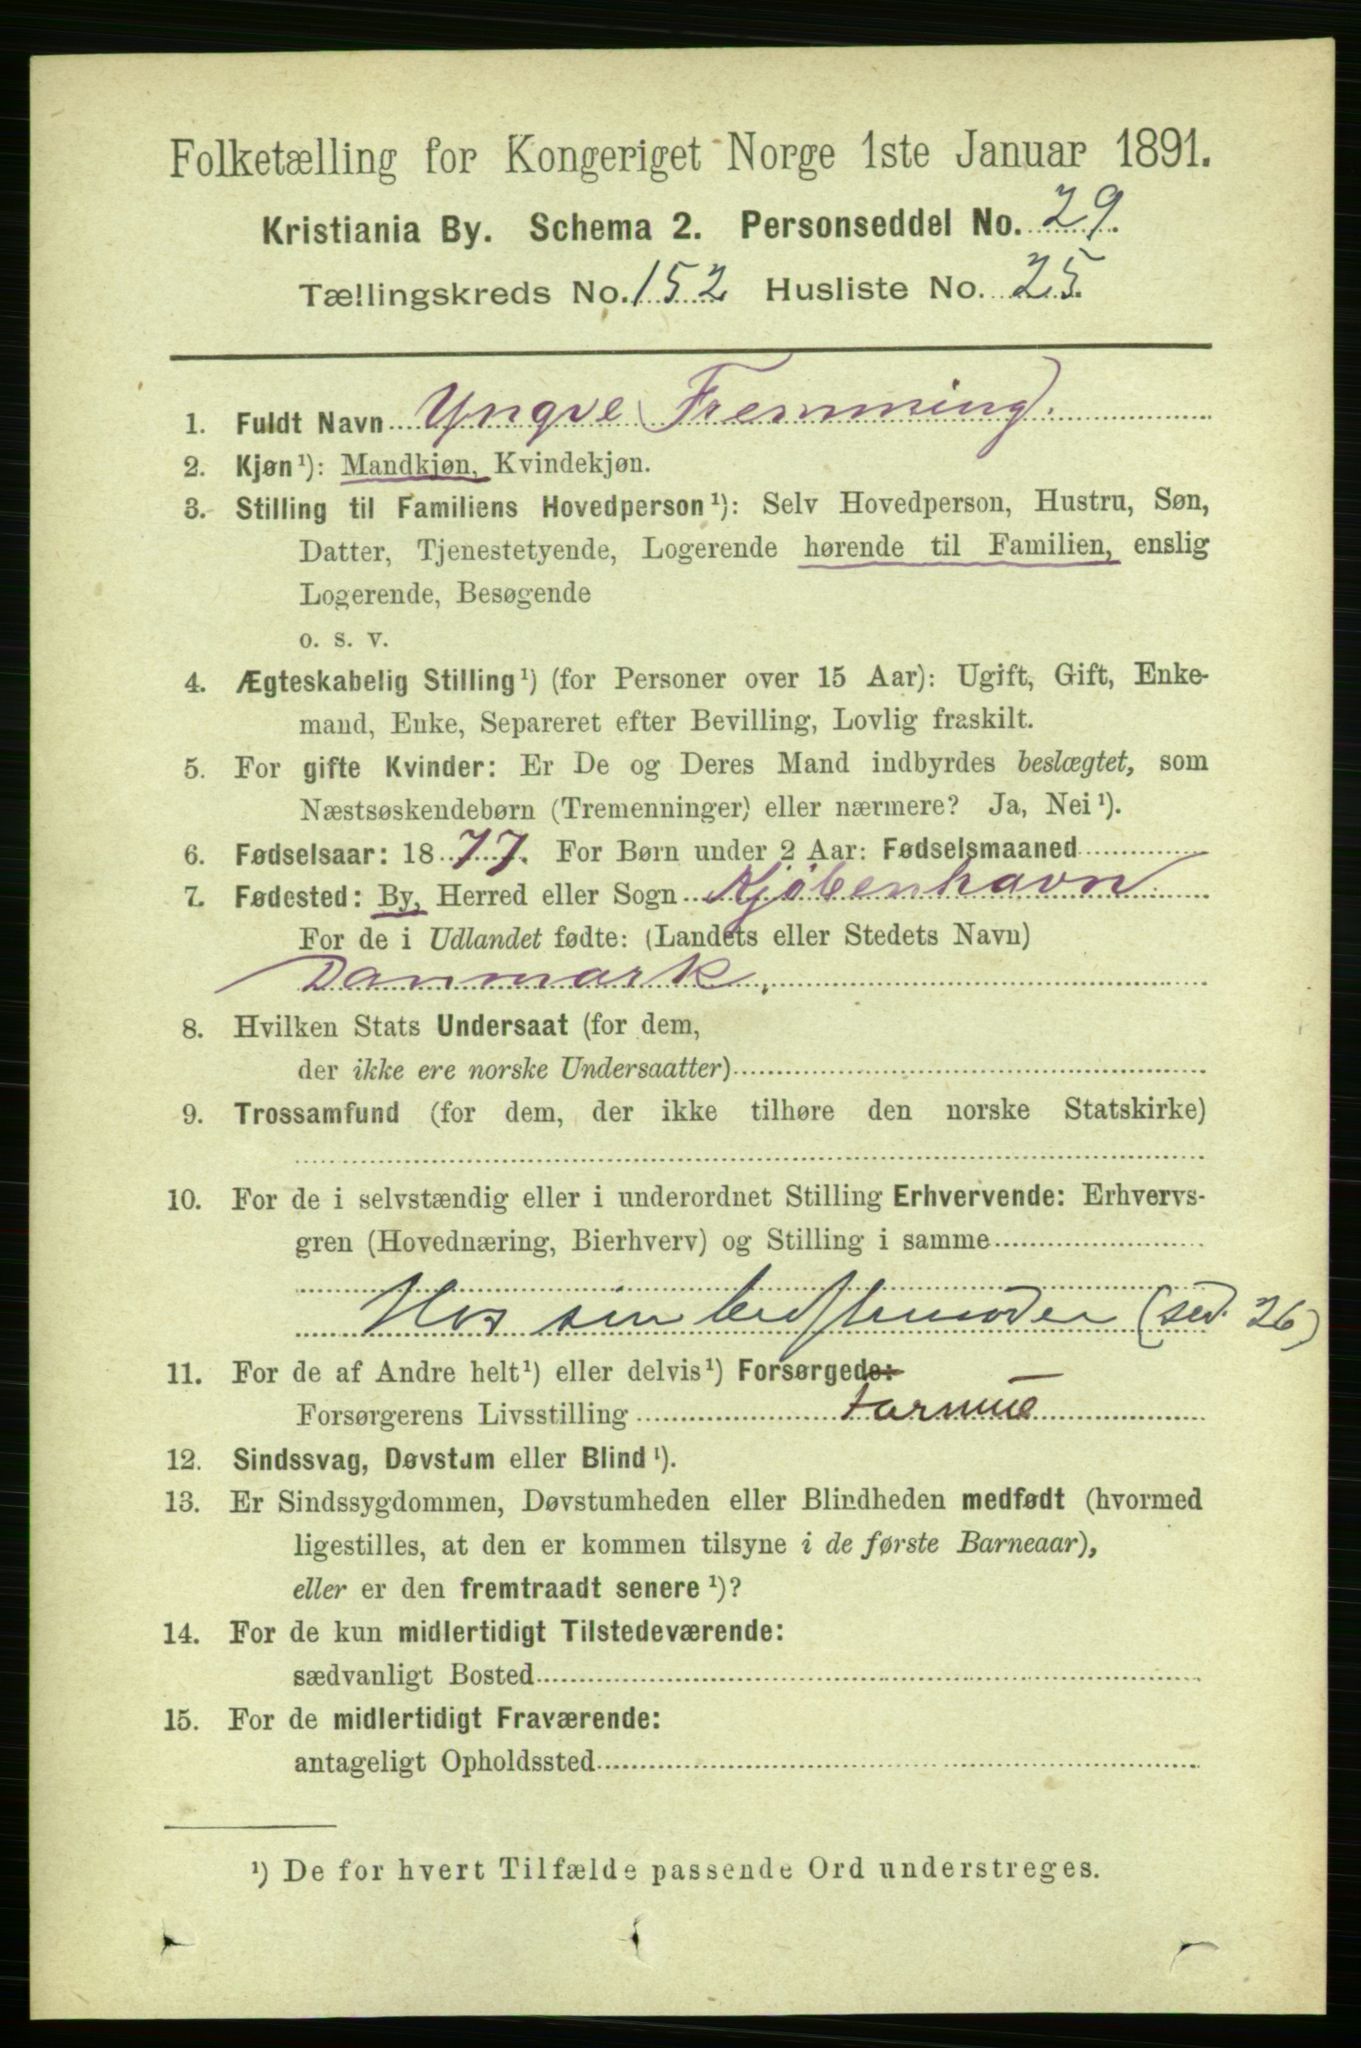 Folketælling for Kongeriget Norge 1ste Januar 1891.
Kristiania By. Schema 2. Personseddel No. 29.
Tællingskreds No. 152 Husliste No. 25.
1. Fuldt Navn Yngve Fremming.
2. Kjøn¹): Mandkjøn, Kvindekjøn.
3. Stilling til Familiens Hovedperson¹): Selv Hovedperson, Hustru, Søn,
Datter, Tjenestetyende, Logerende hørende til Familien, enslig
Logerende, Besøgende
o. s. v.
4. Ægteskabelig Stilling¹) (for Personer over 15 Aar): Ugift, Gift, Enke-
mand, Enke, Separeret efter Bevilling, Lovlig fraskilt.
5. For gifte Kvinder: Er De og Deres Mand indbyrdes beslægtet, som
Næstsøskendebørn (Tremenninger) eller nærmere? Ja, Nei¹).
6. Fødselsaar: 1877. For Børn under 2 Aar: Fødselsmaaned
7. Fødested: By, Herred eller Sogn Kjøbenhavn.
For de i Udlandet fødte: (Landets eller Stedets Navn)
Danmark.
8. Hvilken Stats Undersaat (for dem,
der ikke ere norske Undersaatter)
9. Trossamfund (for dem, der ikke tilhøre den norske Statskirke)
10. For de i selvstændig eller i underordnet Stilling Erhvervende: Erhvervs-
gren (Hovednæring, Bierhverv) og Stilling i samme
Hos sin bedstemoder (sed. 26)
11. For de af Andre helt¹) eller delvis¹) Forsørgede:
Forsørgerens Livsstilling formue
12. Sindssvag, Døvstum eller Blind¹).
13. Er Sindssygdommen, Døvstumheden eller Blindheden medfødt (hvormed
ligestilles, at den er kommen tilsyne i de første Barneaar),
eller er den fremtraadt senere¹)?
14. For de kun midlertidigt Tilstedeværende:
sædvanligt Bosted
15. For de midlertidigt Fraværende:
antageligt Opholdssted
¹) De for hvert Tilfælde passende Ord understreges.